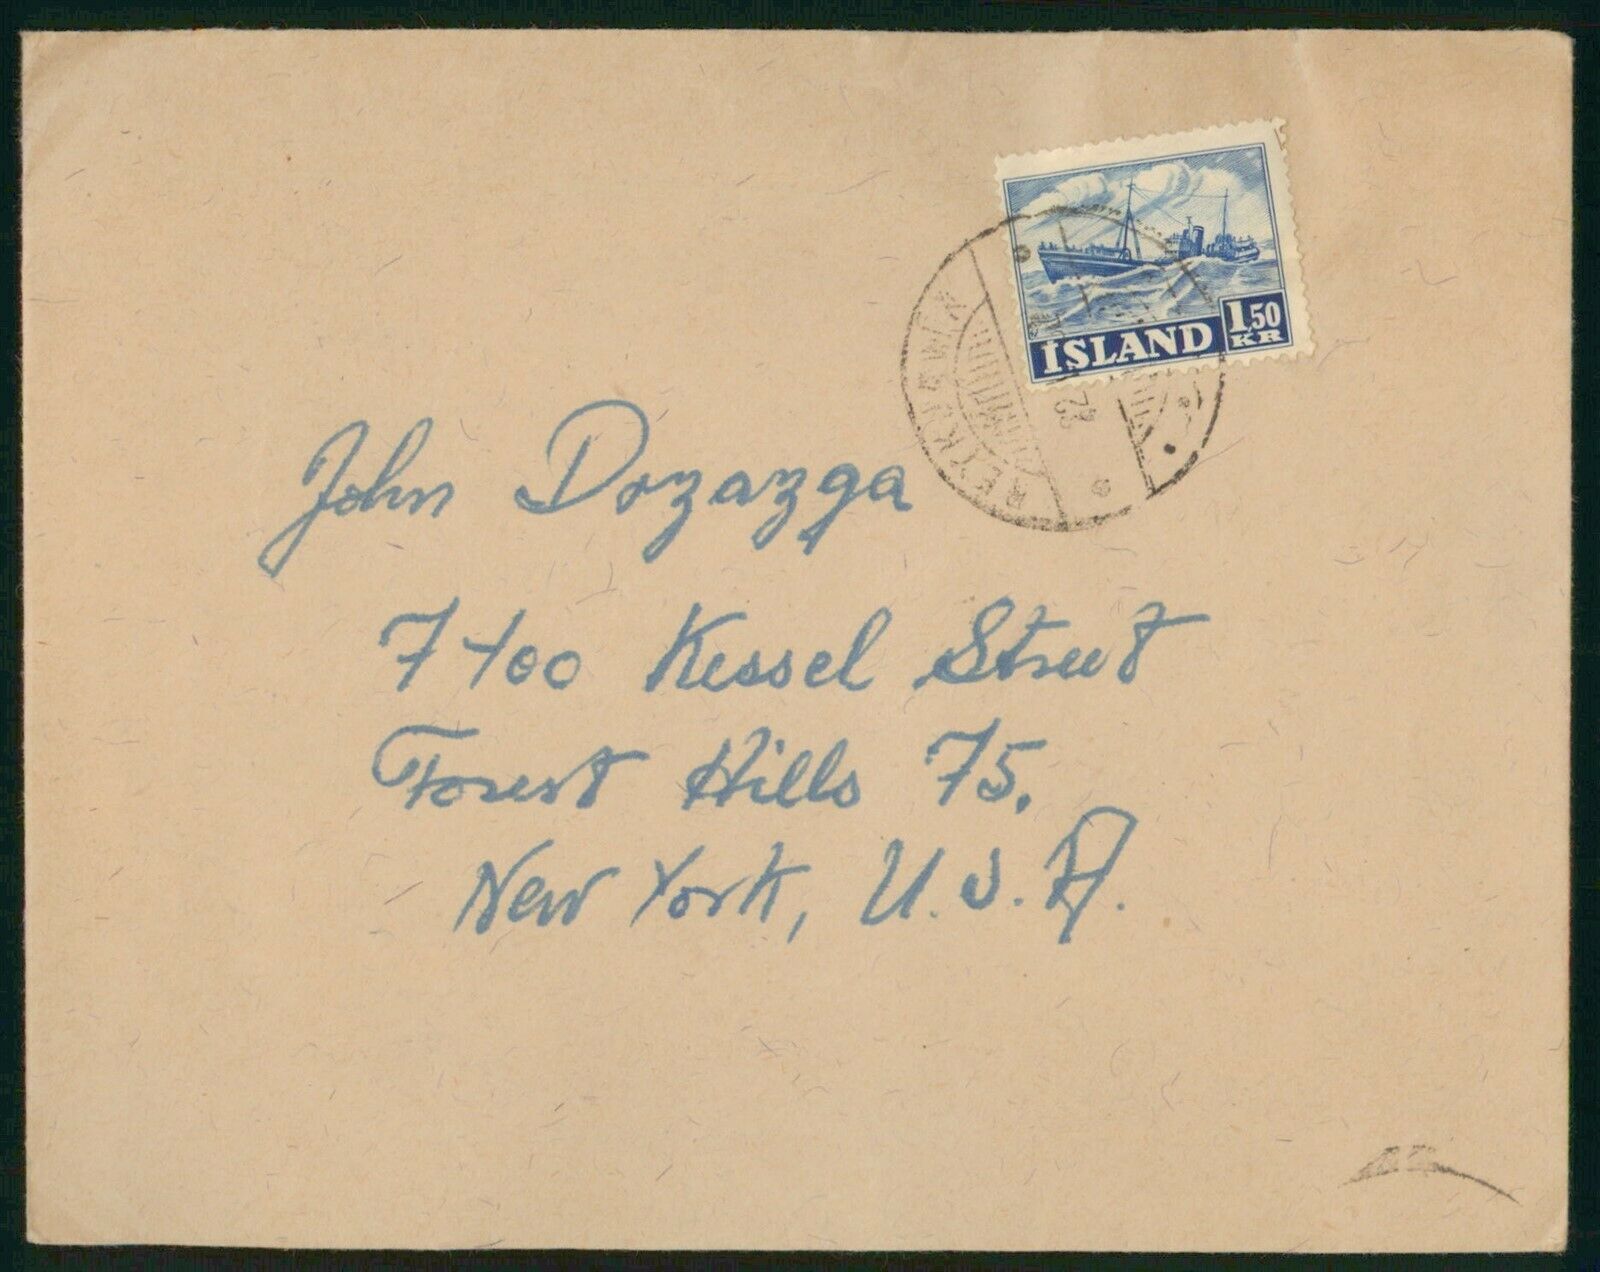 1,50
KR
ÍSLAND
REYKJAVÍK
23
John Dozazga
7400 Kessel Street
Forest Hills 75.
New York, U.S.A.